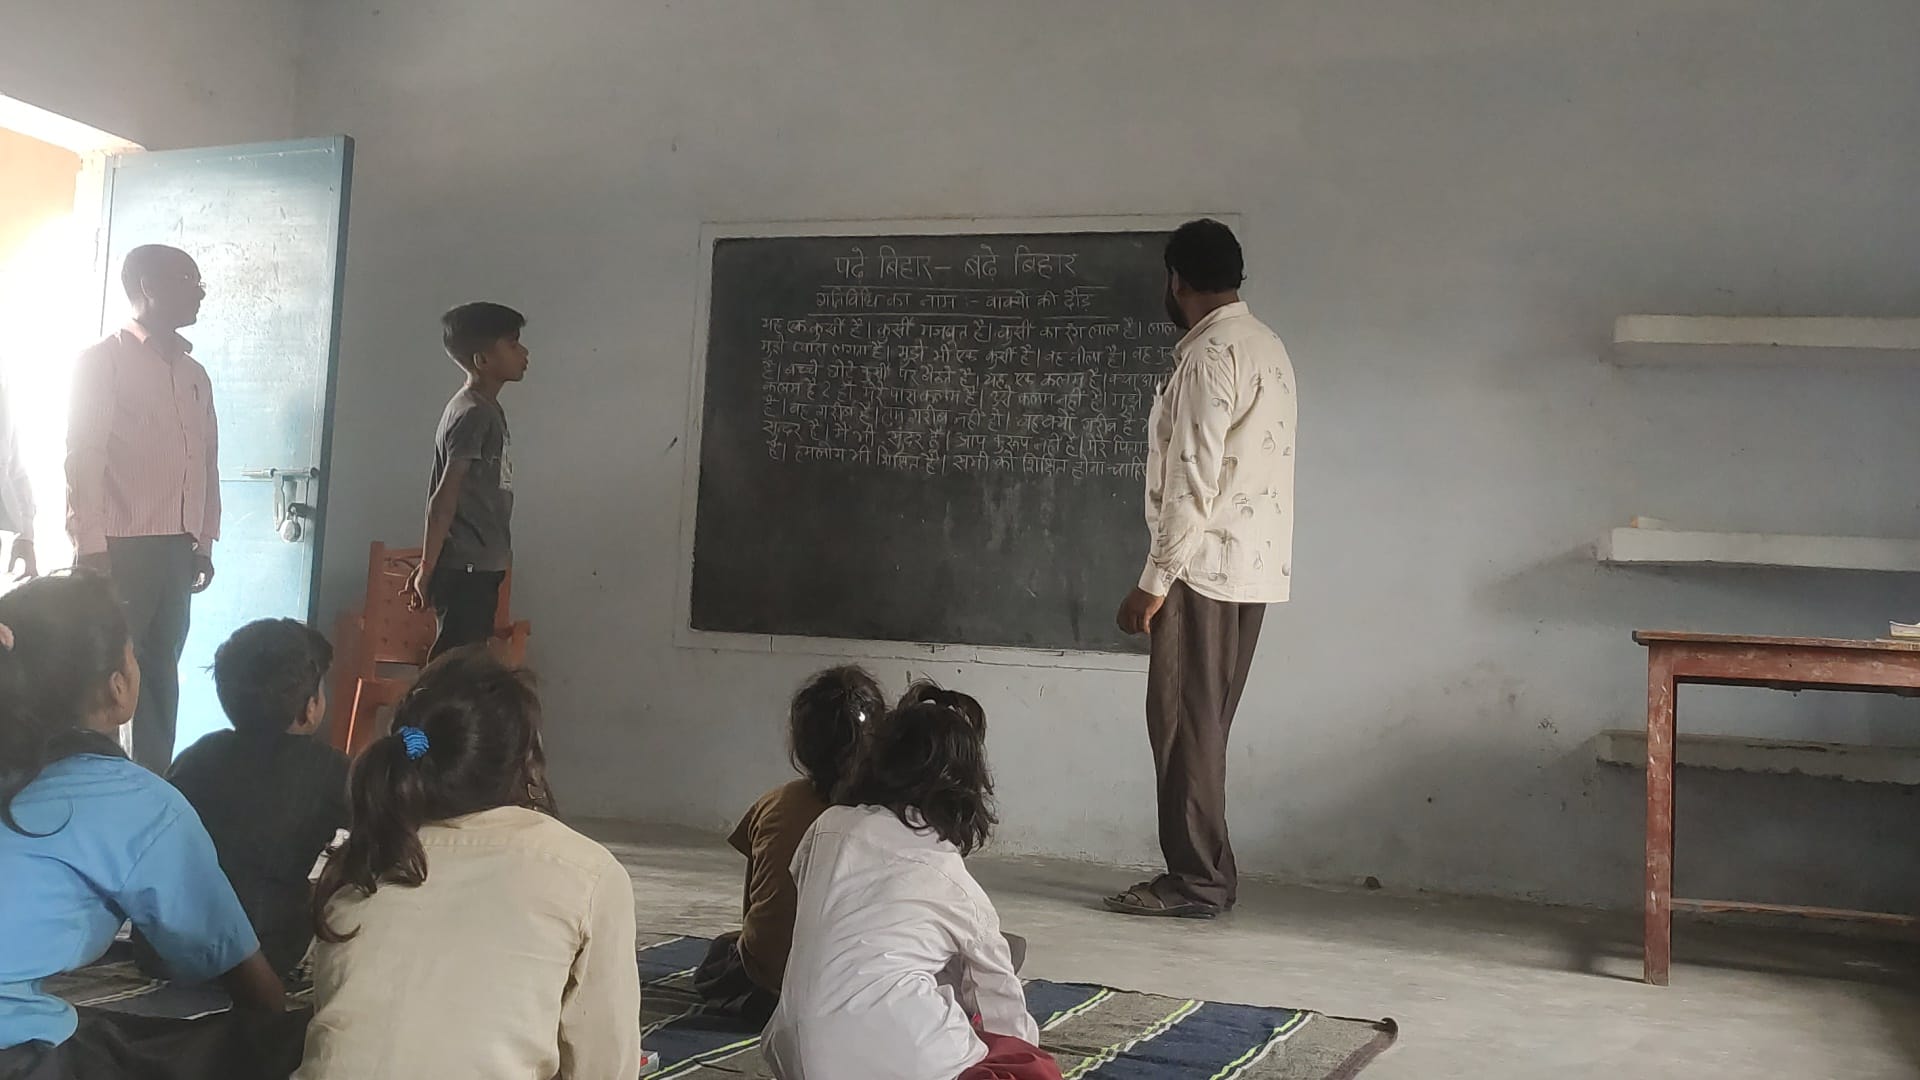 पढ़े बिहार - बढ़े बिहार
गतिविधि का नाम :- वाक्यों की दौड़
यह एक कुर्सी है। कुर्सी मजबूत है। कुर्सी का रंग लाल है। लाल
मुझे प्यारा लगता है। मुझे भी एक कुर्सी है। वह नीला है। वह
है। बच्चे छोटे कुर्सी पर बैठते हैं। यह एक कलम है। क्या
कलम है? हाँ मेरे पास कलम है। उसे कलम नहीं है। मुझे
है। वह गरीब है। हम गरीब नहीं हैं। वह क्यों गरीब है?
सुंदर है। मैं भी सुंदर हूँ। आप कुरूप नहीं हैं। मेरे पिता
हैं। हमलोग भी शिक्षित हैं। सभी को शिक्षित होना चाहि